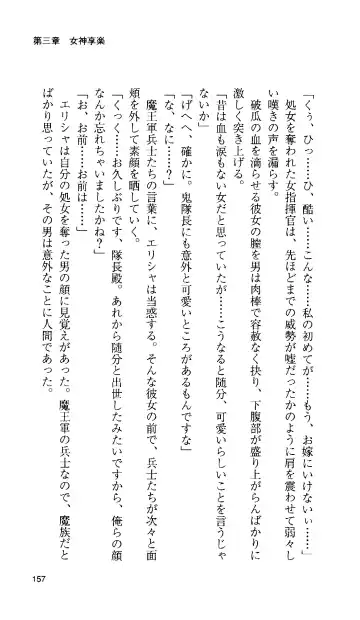 第三章　女神享楽
「くぅ、ひっ……ひ、酷い……こんな……私の初めてが……もう、お嫁にいけないぃ……」
　処女を奪われた女指揮官は、先ほどまでの威勢が嘘だったかのように肩を震わせて弱々し
い嘆きの声を漏らす。
　破瓜の血を滴らせる彼女の膣を男は肉棒で容赦なく抉り、下腹部が盛り上がらんばかりに
激しく突き上げる。
「昔は血も涙もない女だと思っていたが……こうなると随分、可愛いらしいことを言うじゃ
ないか」
「げへへ、確かに。鬼隊長にも意外と可愛いところがあるもんですな」
「な、なに……？」
　魔王軍兵士たちの言葉に、エリシャは当惑する。そんな彼女の前で、兵士たちが次々と面
頬を外して素顔を晒していく。
「くっく……お久しぶりです、隊長殿。あれから随分と出世したみたいですから、俺らの顔
なんか忘れちゃいましたかね？」
「お、お前……お前は……」
　エリシャは自分の処女を奪った男の顔に見覚えがあった。魔王軍の兵士なので、魔族だと
ばかり思っていたが、その男は意外なことに人間であった。
157